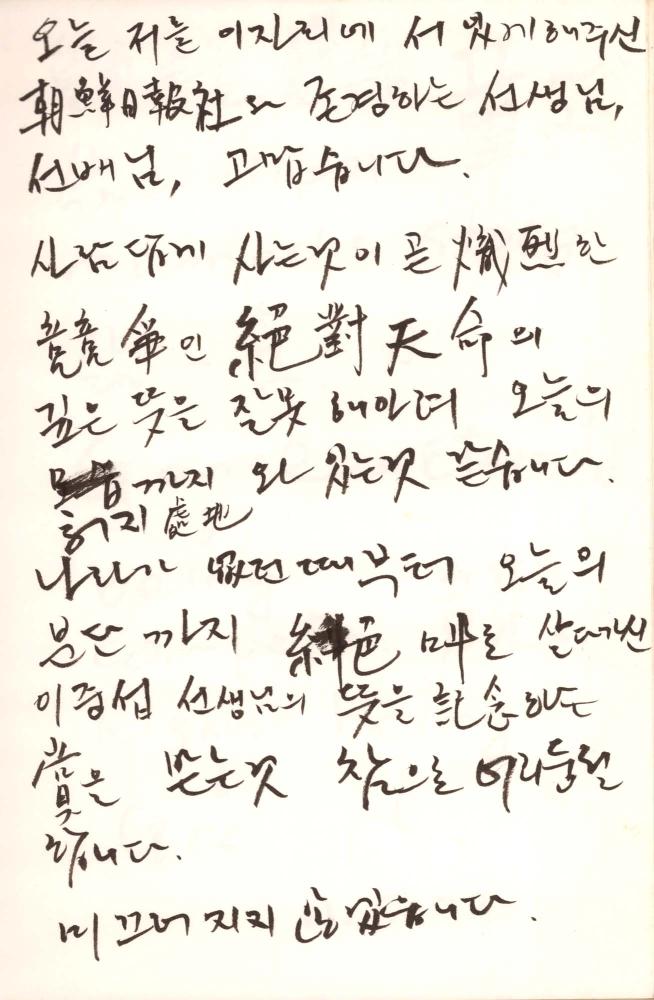 오늘 저를 이자리에 서 있게 해주신
朝鮮日報社와 존경하는 선생님,
선배님, 고맙습니다.
사람 답게 사는것이 곧 熾烈한
競爭인 絕對天命의
깊은 뜻을 잘못 헤아려 오늘의
까지 와 있는것 같습니다.
處地
나라가 없던 때부터 오늘의
분단 까지 로 살다가신
이중섭 선생님의 뜻을 記念하는
賞을 받는것 참으로 어리둥절
합니다.
미끄러 지지 않겠습니다.